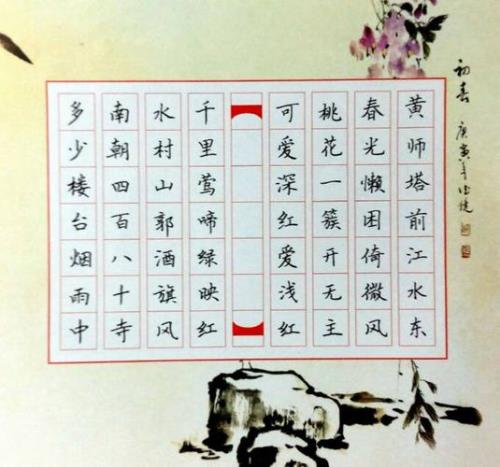 黄师塔前江水东
春光懒困倚微风
桃花一簇开无主
可爱深红爱浅红
千里莺啼绿映红
水村山郭酒旗风
南朝四百八十寺
多少楼台烟雨中
初春
庚寅年